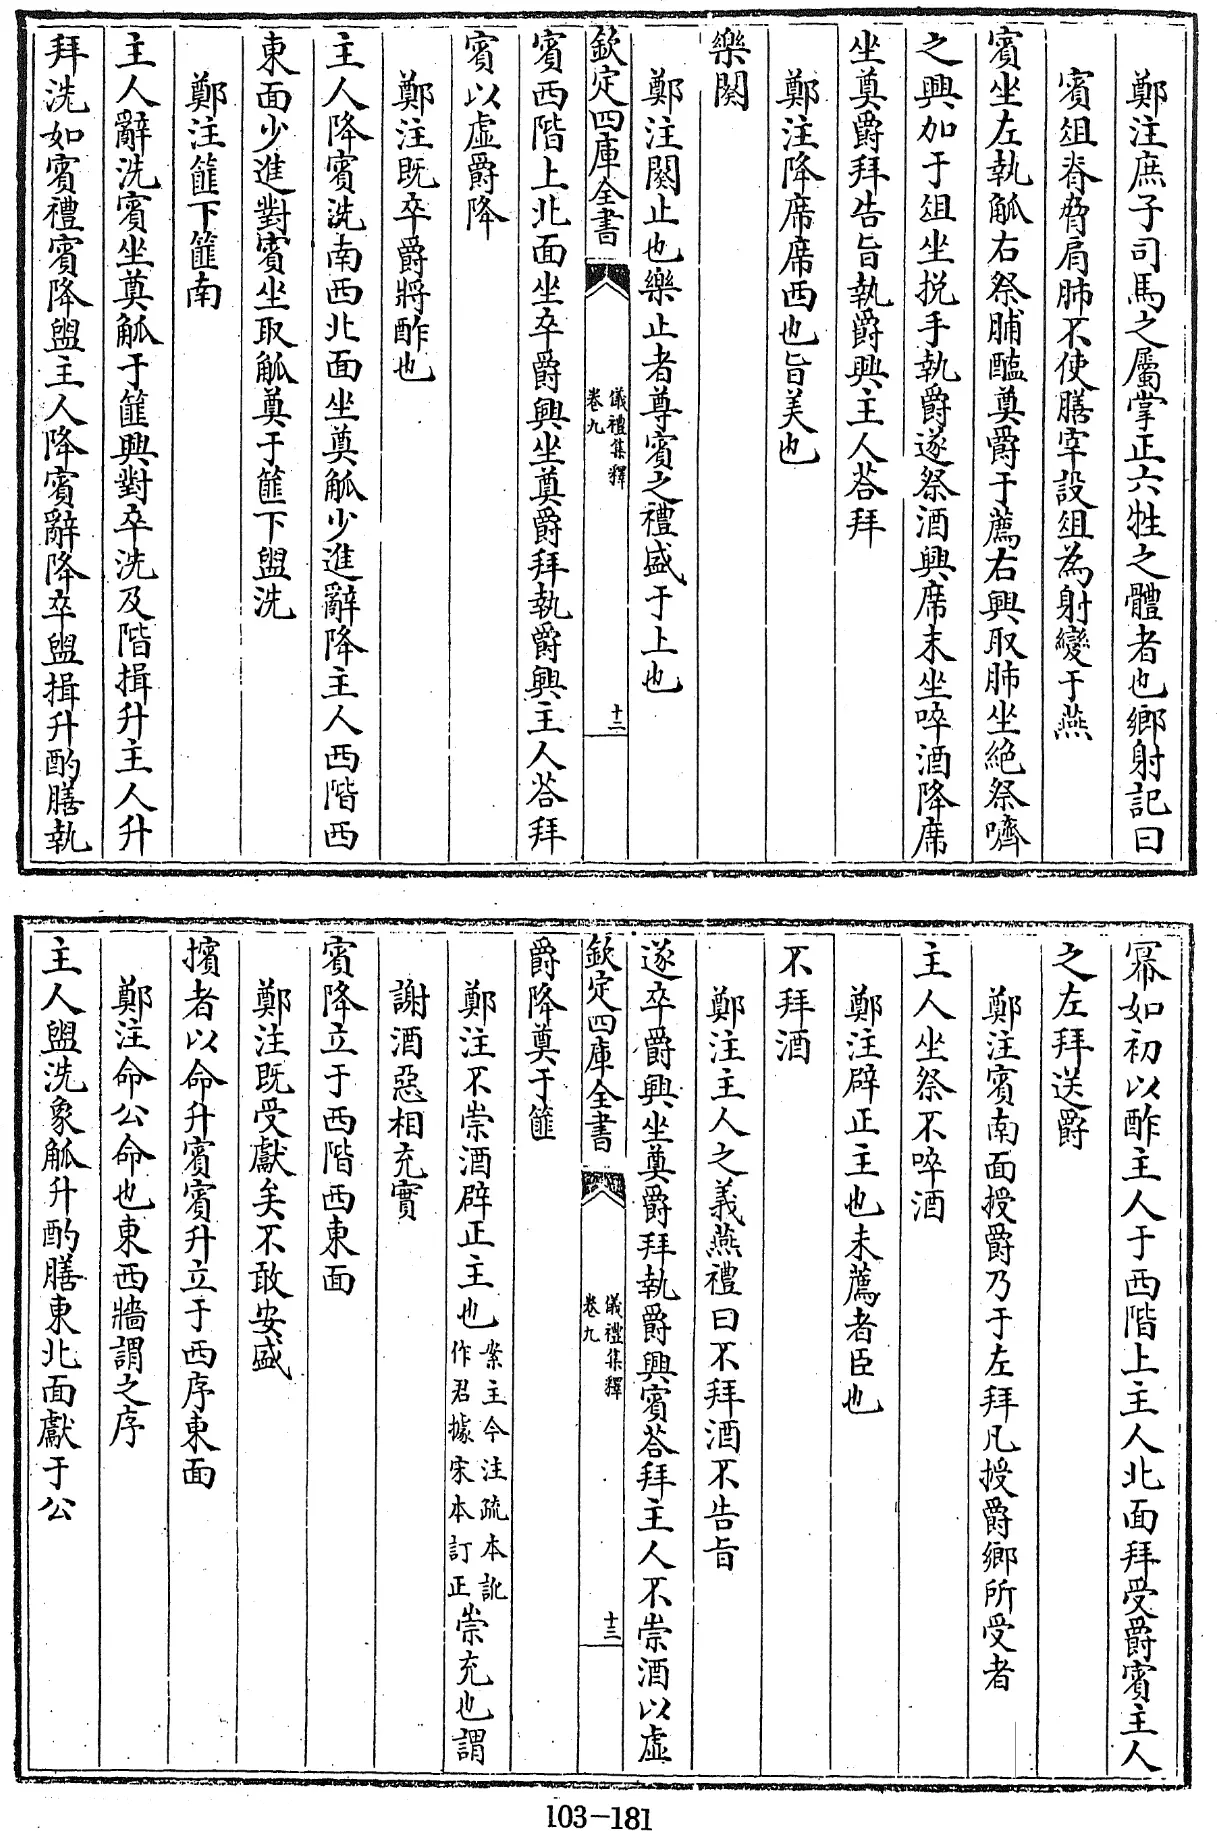 鄭注庶子司馬之屬掌正六牲之體者也鄉射記曰
賓俎脊脅肩肺不使膳宰設俎為射變于燕
賓坐左執觚右祭脯醢奠爵于薦右興取肺坐絶祭嚌
之興加于俎坐挩手執爵遂祭酒興席末坐啐酒降席
坐奠爵拜告旨執爵興主人荅拜
鄭注降席席西也旨美也
樂闋
鄭注闋止也樂止者尊賓之禮盛于上也
欽定四庫全書
儀禮集釋
卷九
十二
賓西階上北面坐卒爵興坐奠爵拜執爵興主人荅拜
賓以虛爵降
鄭注既卒爵將酢也
主人降賓洗南西北面坐奠觚少進辭降主人西階西
東面少進對賓坐取觚奠于篚下盥洗
鄭注篚下篚南
主人辭洗賓坐奠觚于篚興對卒洗及階揖升主人升
拜洗如賓禮賓降盥主人降賓辭降卒盥揖升酌膳執
冪如初以酢主人于西階上主人北面拜受爵賓主人
之左拜送爵
鄭注賓南面授爵乃于左拜凡授爵鄉所受者
主人坐祭不啐酒
鄭注辟正主也未薦者臣也
不拜酒
鄭注主人之義燕禮曰不拜酒不告旨
遂卒爵興坐奠爵拜執爵興賓荅拜主人不崇酒以虛
欽定四庫全書
儀禮集釋
卷九
十三
爵降奠于篚
鄭注不崇酒辟正主也案主今注疏本訛作君據宋本訂正崇充也謂
謝酒惡相充實
賓降立于西階西東面
鄭注既受獻矣不敢安盛
擯者以命升賓賓升立于西序東面
鄭注命公命也東西牆謂之序
主人盥洗象觚升酌膳東北面獻于公
103-181